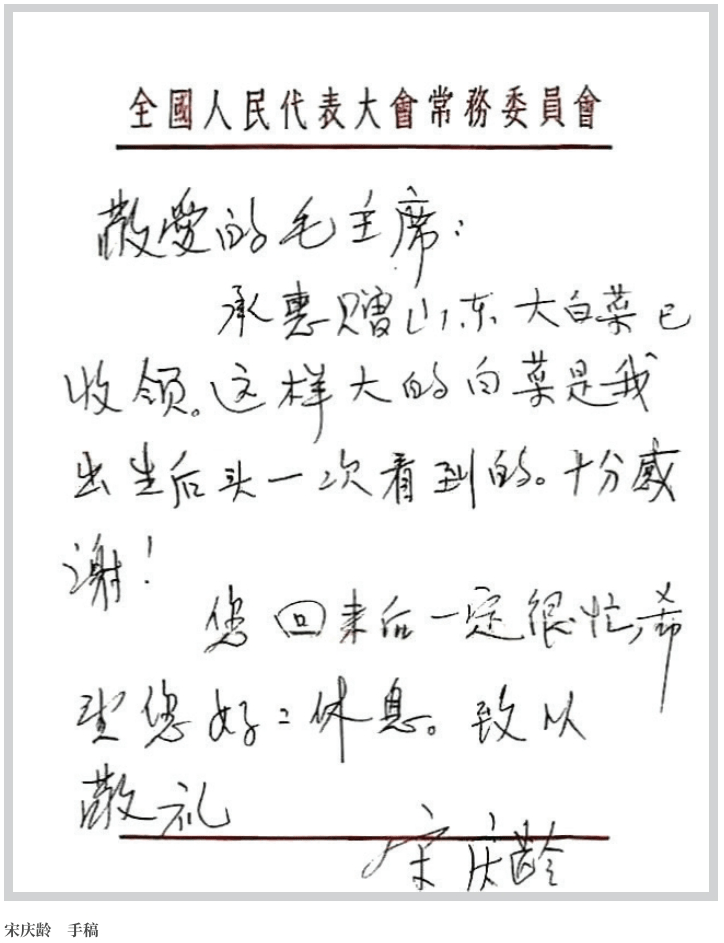 全國人民代表大會常務委員會
敬爱的毛主席：
承惠赠山东大白菜已
收领。这样大的白菜是我
出生后头一次看到的。十分感
谢！
您回来后一定很忙，希
望您好〻休息。致以
敬礼
宋庆龄
宋庆龄　手稿